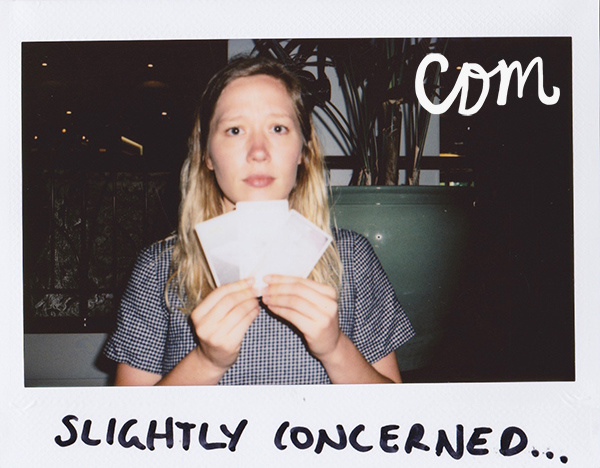 COM
SLIGHTLY CONCERNED...